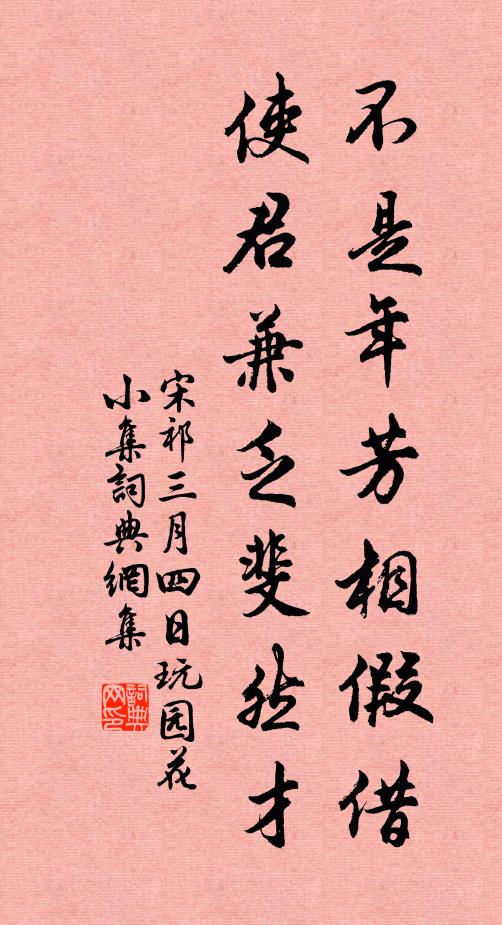 不是年芳相假借
使君兼乏斐然才
宋祁三月四日玩园花
小集詞典網集
詞典网印